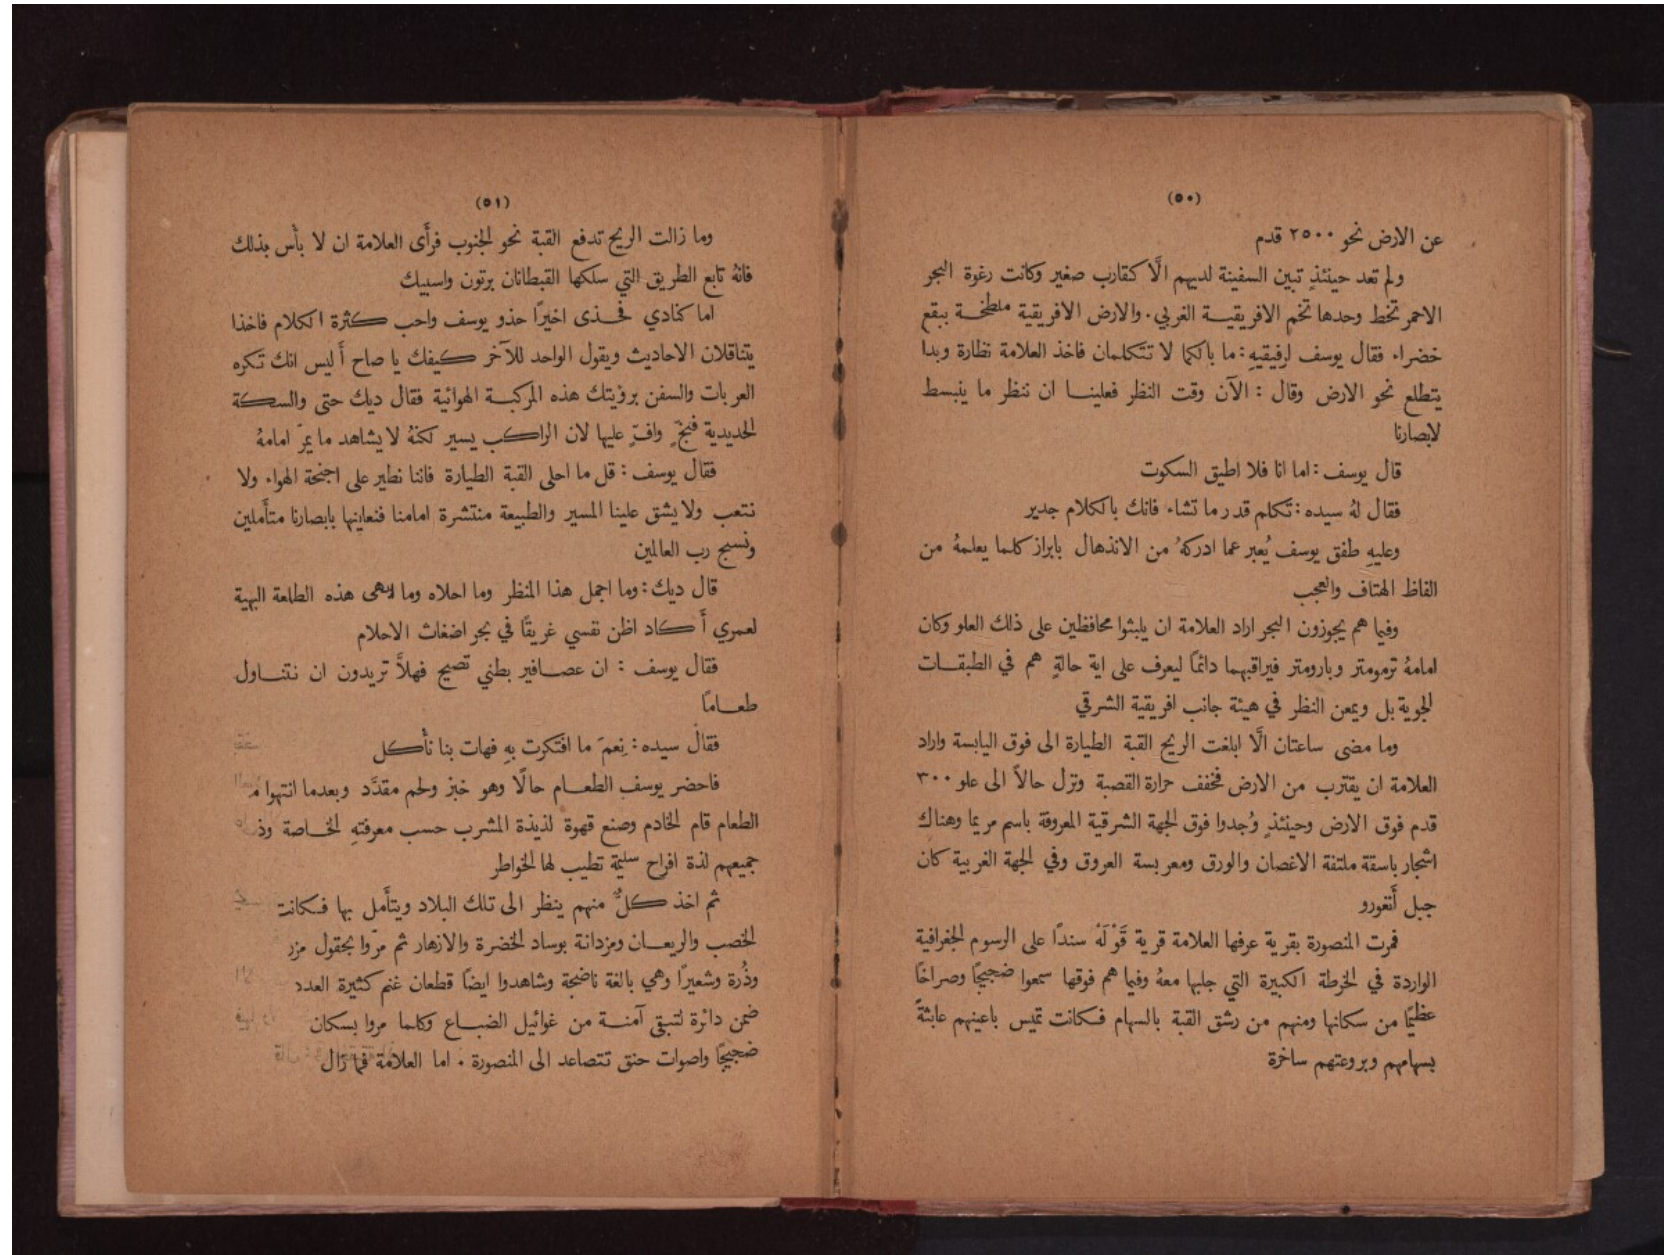 (٥٠)
عن الارض نحو ٢٥٠٠ قدم
ولم تعد حينئذٍ تبين السفينة لديهم الَّا كقارب صغير وكانت رغوة البحر
الاحمر تخط وحدها تخم الافريقيـة الغربي. والارض الافريقية ملطخـة ببقع
خضراء فقال يوسف لرفيقيهِ: ما بالكما لا تتكلمان فاخذ العلامة نظارة وبدا
يتطلع نحو الارض وقال : الآن وقت النظر فعلينـا ان ننظر ما ينبسط
لابصارنا
قال يوسف : اما انا فلا اطيق السكوت
فقال لهُ سيده : تكلم قدر ما تشاء فانك بالكلام جدير
وعليهِ طفق يوسف يُعبر عما ادركهُ من الانذهال بابراز كلما يعلمهُ من
الفاظ الهتاف والعجب
وفيما هم يجوزون البحر اراد العلامة ان يلبثوا محافظين على ذلك العلو وكان
امامهُ ترمومتر وبارومتر فيراقبهما دائمًا ليعرف على اية حالةٍ هم في الطبقـات
الجوية بل ويمعن النظر في هيئة جانب افريقية الشرقي
وما مضى ساعتان الَّا ابلغت الريح القبة الطيارة الى فوق اليابسة واراد
العلامة ان يقترب من الارض فخفف حرارة القصبة ونزل حالاً الى علو ٣٠٠
قدم فوق الارض وحينئذٍ وُجدوا فوق الجهة الشرقية المعروفة باسم مريما وهناك
اشجار باسقة ملتفة الاغصان والورق ومعربسة العروق وفي الجهة الغربية كان
جبل أَنغورو
فمرت المنصورة بقرية عرفها العلامة قرية قَوْلَهْ سندًا على الرسوم الجغرافية
الواردة في الخرطة الكبيرة التي جلبها معهُ وفيما هم فوقها سمعوا ضجيجًا وصراخًا
عظيمًا من سكانها ومنهم من رشق القبة بالسهام فـكانت تميس باعينهم عابثةً
بسهامهم وبروعتهم ساخرة
(٥١)
وما زالت الريح تدفع القبة نحو الجنوب فرأَى العلامة ان لا بأس بذلك
فانهُ تابع الطريق التي سلكها القبطانان برتون واسبيك
اما كنادي فحـذى اخيرًا حذو يوسف واحب كثرة الكلام فاخذا
يتناقلان الاحاديث ويقول الواحد للآخر كيفك يا صاح أَليس انك تكره
العربات والسفن برؤيتك هذه المركبـة الهوائية فقال ديك حتى والسكة
الحديدية فبخٍّ وافٍّ عليها لان الراكب يسير لكنهُ لا يشاهد ما يمرّ امامهُ
فقال يوسف : قل ما احلى القبة الطيارة فاننا نطير على اجنحة الهواء ولا
نتعب ولا يشق علينا المسير والطبيعة منتشرة امامنا فنعاينها بابصارنا متأَملين
ونسبح رب العالمين
قال ديك : وما اجمل هذا المنظر وما احلاه وما ابهى هذه الطلعة البهية
لعمري أَكاد اظن نفسي غريقًا في بحر اضغاث الاحلام
فقال يوسف : ان عصـافير بطني تصيح فهلاَّ تريدون ان نتنـاول
طعـامًا
فقال سيده : نِعمَ ما افتكرت بهِ فهات بنا نأكل
فاحضر يوسف الطعـام حالًا وهو خبز ولحم مقدَّد وبعدما انتهوا
الطعام قام الخادم وصنع قهوة لذيذة المشرب حسب معرفتهِ الخـاصة
جميعهم لذة افراح سليمة تطيب لها الخواطر
ثم اخذ كلٌّ منهم ينظر الى تلك البلاد ويتأَمل بها فـكانت
الخصب والريعـان ومزدانة بوساد الخضرة والازهار ثم مرّوا بحقول
وذُرة وشعيرًا وهي بالغة ناضجة وشاهدوا ايضًا قطعان غنم كثيرة العدد
ضمن دائرة لتبقى آمنـة من غوائيل الضبـاع وكلما مروا بسكان
ضجيجًا واصوات حنق تتصاعد الى المنصورة . اما العلامة فما زال